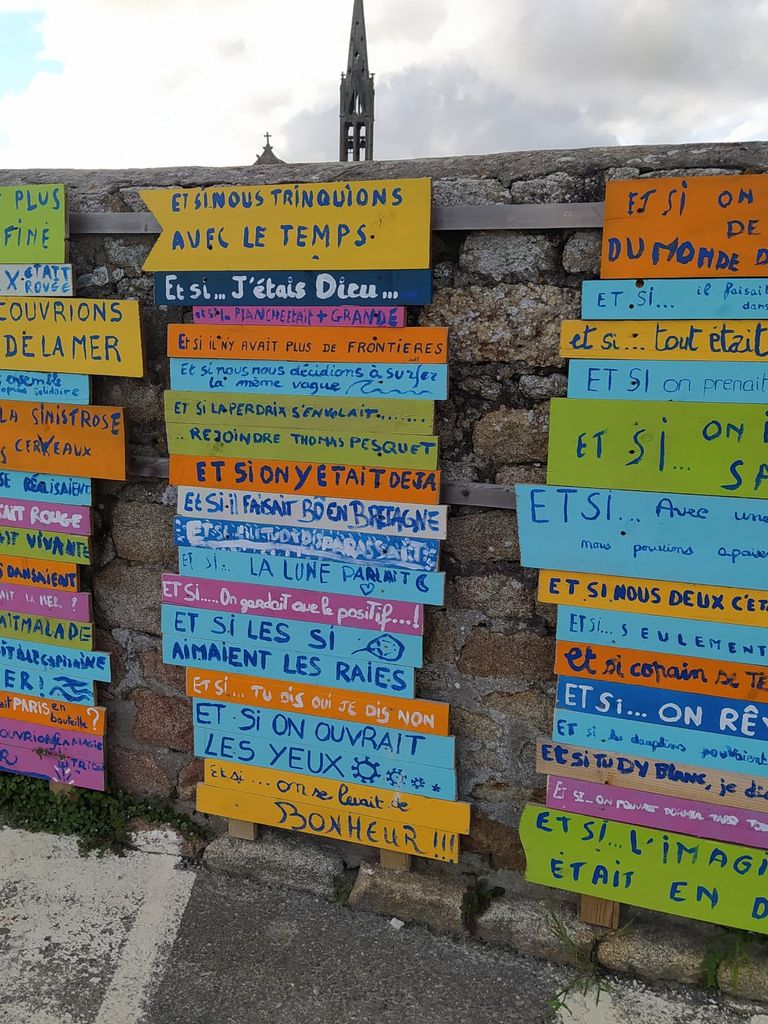 PLUS
FINÉ
X ÉTAIT
ROUGE
COUVRIONS
DE LA MER
ensemble
LA SINISTROSE
CERVEAUX
SE RÉALISAIENT
ÉTAIT ROUGE
VIVANTE
DANSAIENT
LA MER ?
MALADE
LE CAPITAINE
ER !
PARIS en
bouteille ?
ET SI NOUS TRINQUIONS
AVEC LE TEMPS.
Et si... J'étais Dieu...
et si la PLANCHE ETAIT + GRANDE
ET SI IL N'Y AVAIT PLUS DE FRONTIERES
Et si nous nous décidions à surfer
la même vague
ET SI LA PERDRIX S'ENVOLAIT.......
.. REJOINDRE THOMAS PESQUET
ET SI ON Y ETAIT DEJA
ET Si il FAISAIT BÔ EN BRETAGNE
ET SI... LA LUNE PARLAIT
ET SI.....On gardait que le positif....!
ET SI LES SI
AIMAIENT LES RAIES
ET SI... TU DIS OUI JE DIS NON
ET SI ON OUVRAIT
LES YEUX
Et si ... on se luait de
BONHEUR !!!
ET SI ON
DE
DU MONDE
ET SI... il faisait
dans
et si ... tout était
ET SI on prenait
ET SI... ON
SA
ET SI... Avec une
nous pouvions apaise
ET SI NOUS DEUX C'ÉTA
ET SI... SEULEMENT
et si copain se TE
ET SI... ON RÊV
Et si les dauphins pouvaient
ET SI TU DY Blanc, je di
ET SI... ON POUVAIT DORMIR TARD TOU
ET SI... L'IMAGI
ÉTAIT EN D